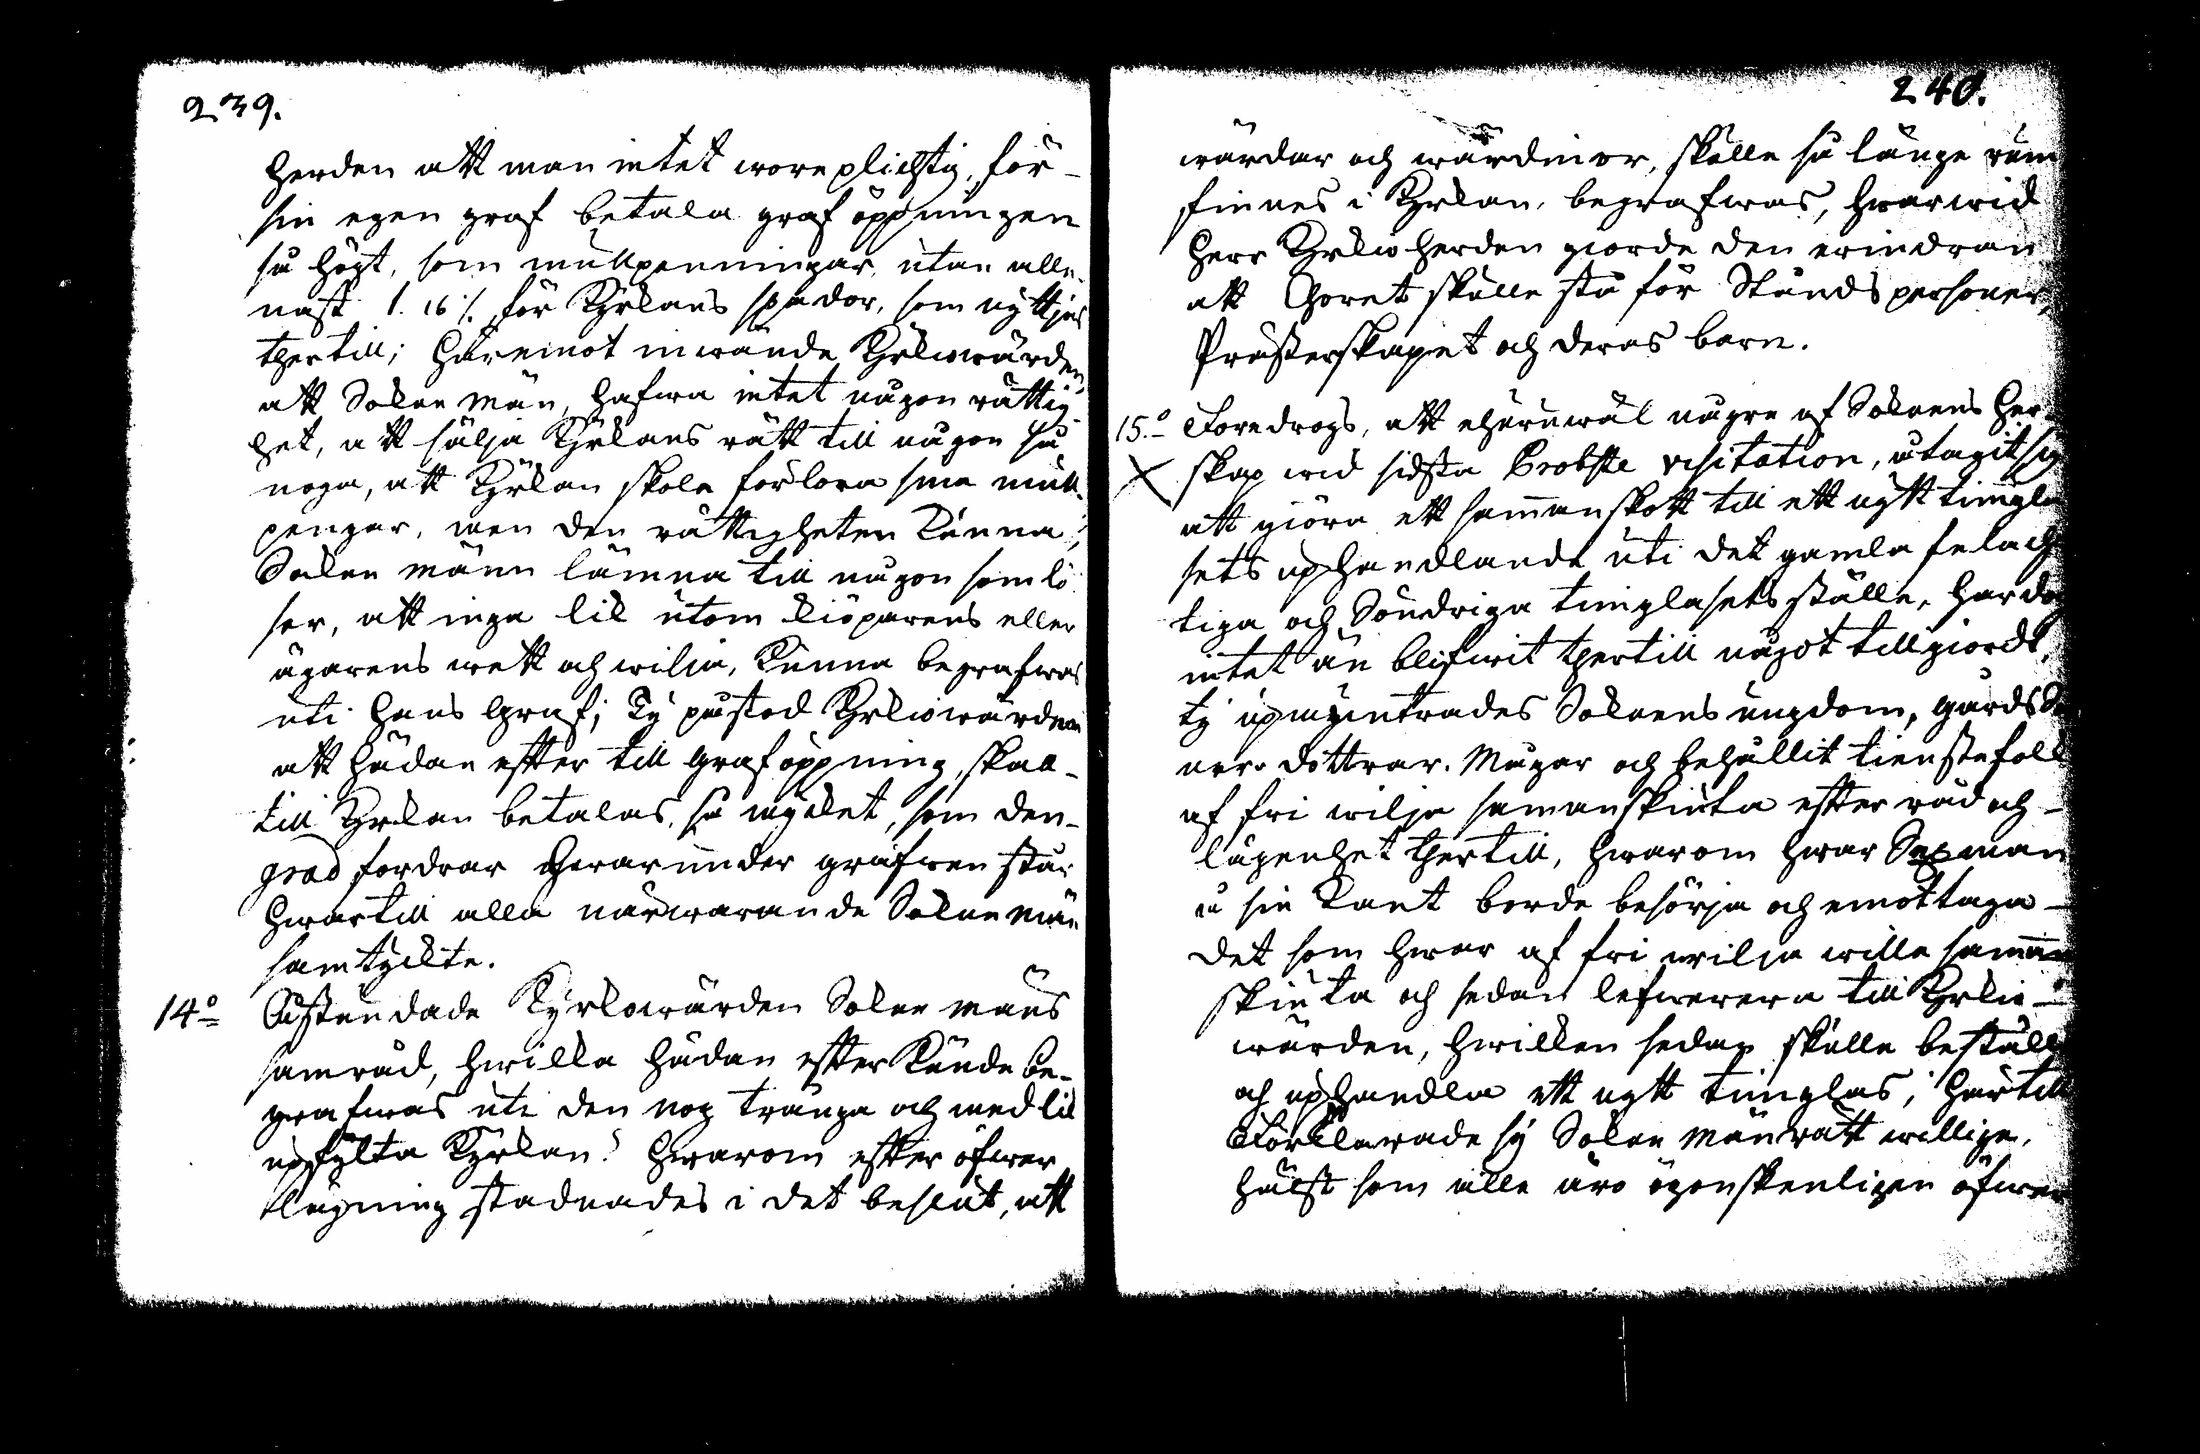 239.
herden att man intet wore plichtig, för
sin egen graf betala graföppningen
så högt, som mullpenningar, utan alle-
nast 1. 16 /. för Kyrkans spador, som nyttjas
thertill; Häremot inwände Kyrkiowärden,
att Sokne Män, hafwa intet någon rättig-
het, att sälja Kyrkans rätt till någon så
noga, att Kyrkan skole förlora sina mull-
pengar, men den rättigheten kunna
Sokne männ lämna till någon som lö-
ser, att inga lik utom kiöparens eller
ägarens wett och wilja, kunna begrafwas
uti hans Graf; Ty påstod Kyrkiowärden
att hädan efter till Graföppning, skall
till Kyrkan betalas, så mycket, som den
grad fordrar hwarunder grafwen står
hwartill alla närwarande Sokne män
samtyckte.
14o Åstundade Kyrkowärden Sokne Mäns
samråd, hwilka hädan efter kunde be-
grafwas uti den nog trånga och med lik
upfylta Kyrkan? Hwarom efter öfwer-
läggning stadnades i det beslut, att
240.
wärdar och wärdinor, skulle så länge rum
finnes i Kyrkan, begrafwas, hwarwid
Herr Kyrkioherden giorde den erindran
att Choret skulle stå för Stånds personer,
Prästerskapet och deras barn.
15o Föredrogs, att ehuruwäl några af Soknens Her-
skap wid sidsta Probste visitation, utagit sig
att giöra ett sammanskott till ett nytt timgla
sets uphandlande uti det gamla felach-
tiga och Söndriga timglasets ställe, har dock
intet än blifwit thertill något tillgiordt,
ty upmuntrades Soknens ungdom, gårds
ner. döttrar. Mågar och behållit tienstefolk
af fri wilja sammanskiuta efter råd och
lägenhet thertill, hwarom hwar Sexman
å sin kant borde besörja och emottaga
det som hwar af fri wilja wille samman
skiuta och sedan lefwerera till Kyrkio-
wärden, hwilken sedan skulle beställa
och uphandla ett nytt timglas; Härtill
Förklarade sig Sokne Män rätt willige,
hälst som alle äro ögonskenligen öfwer